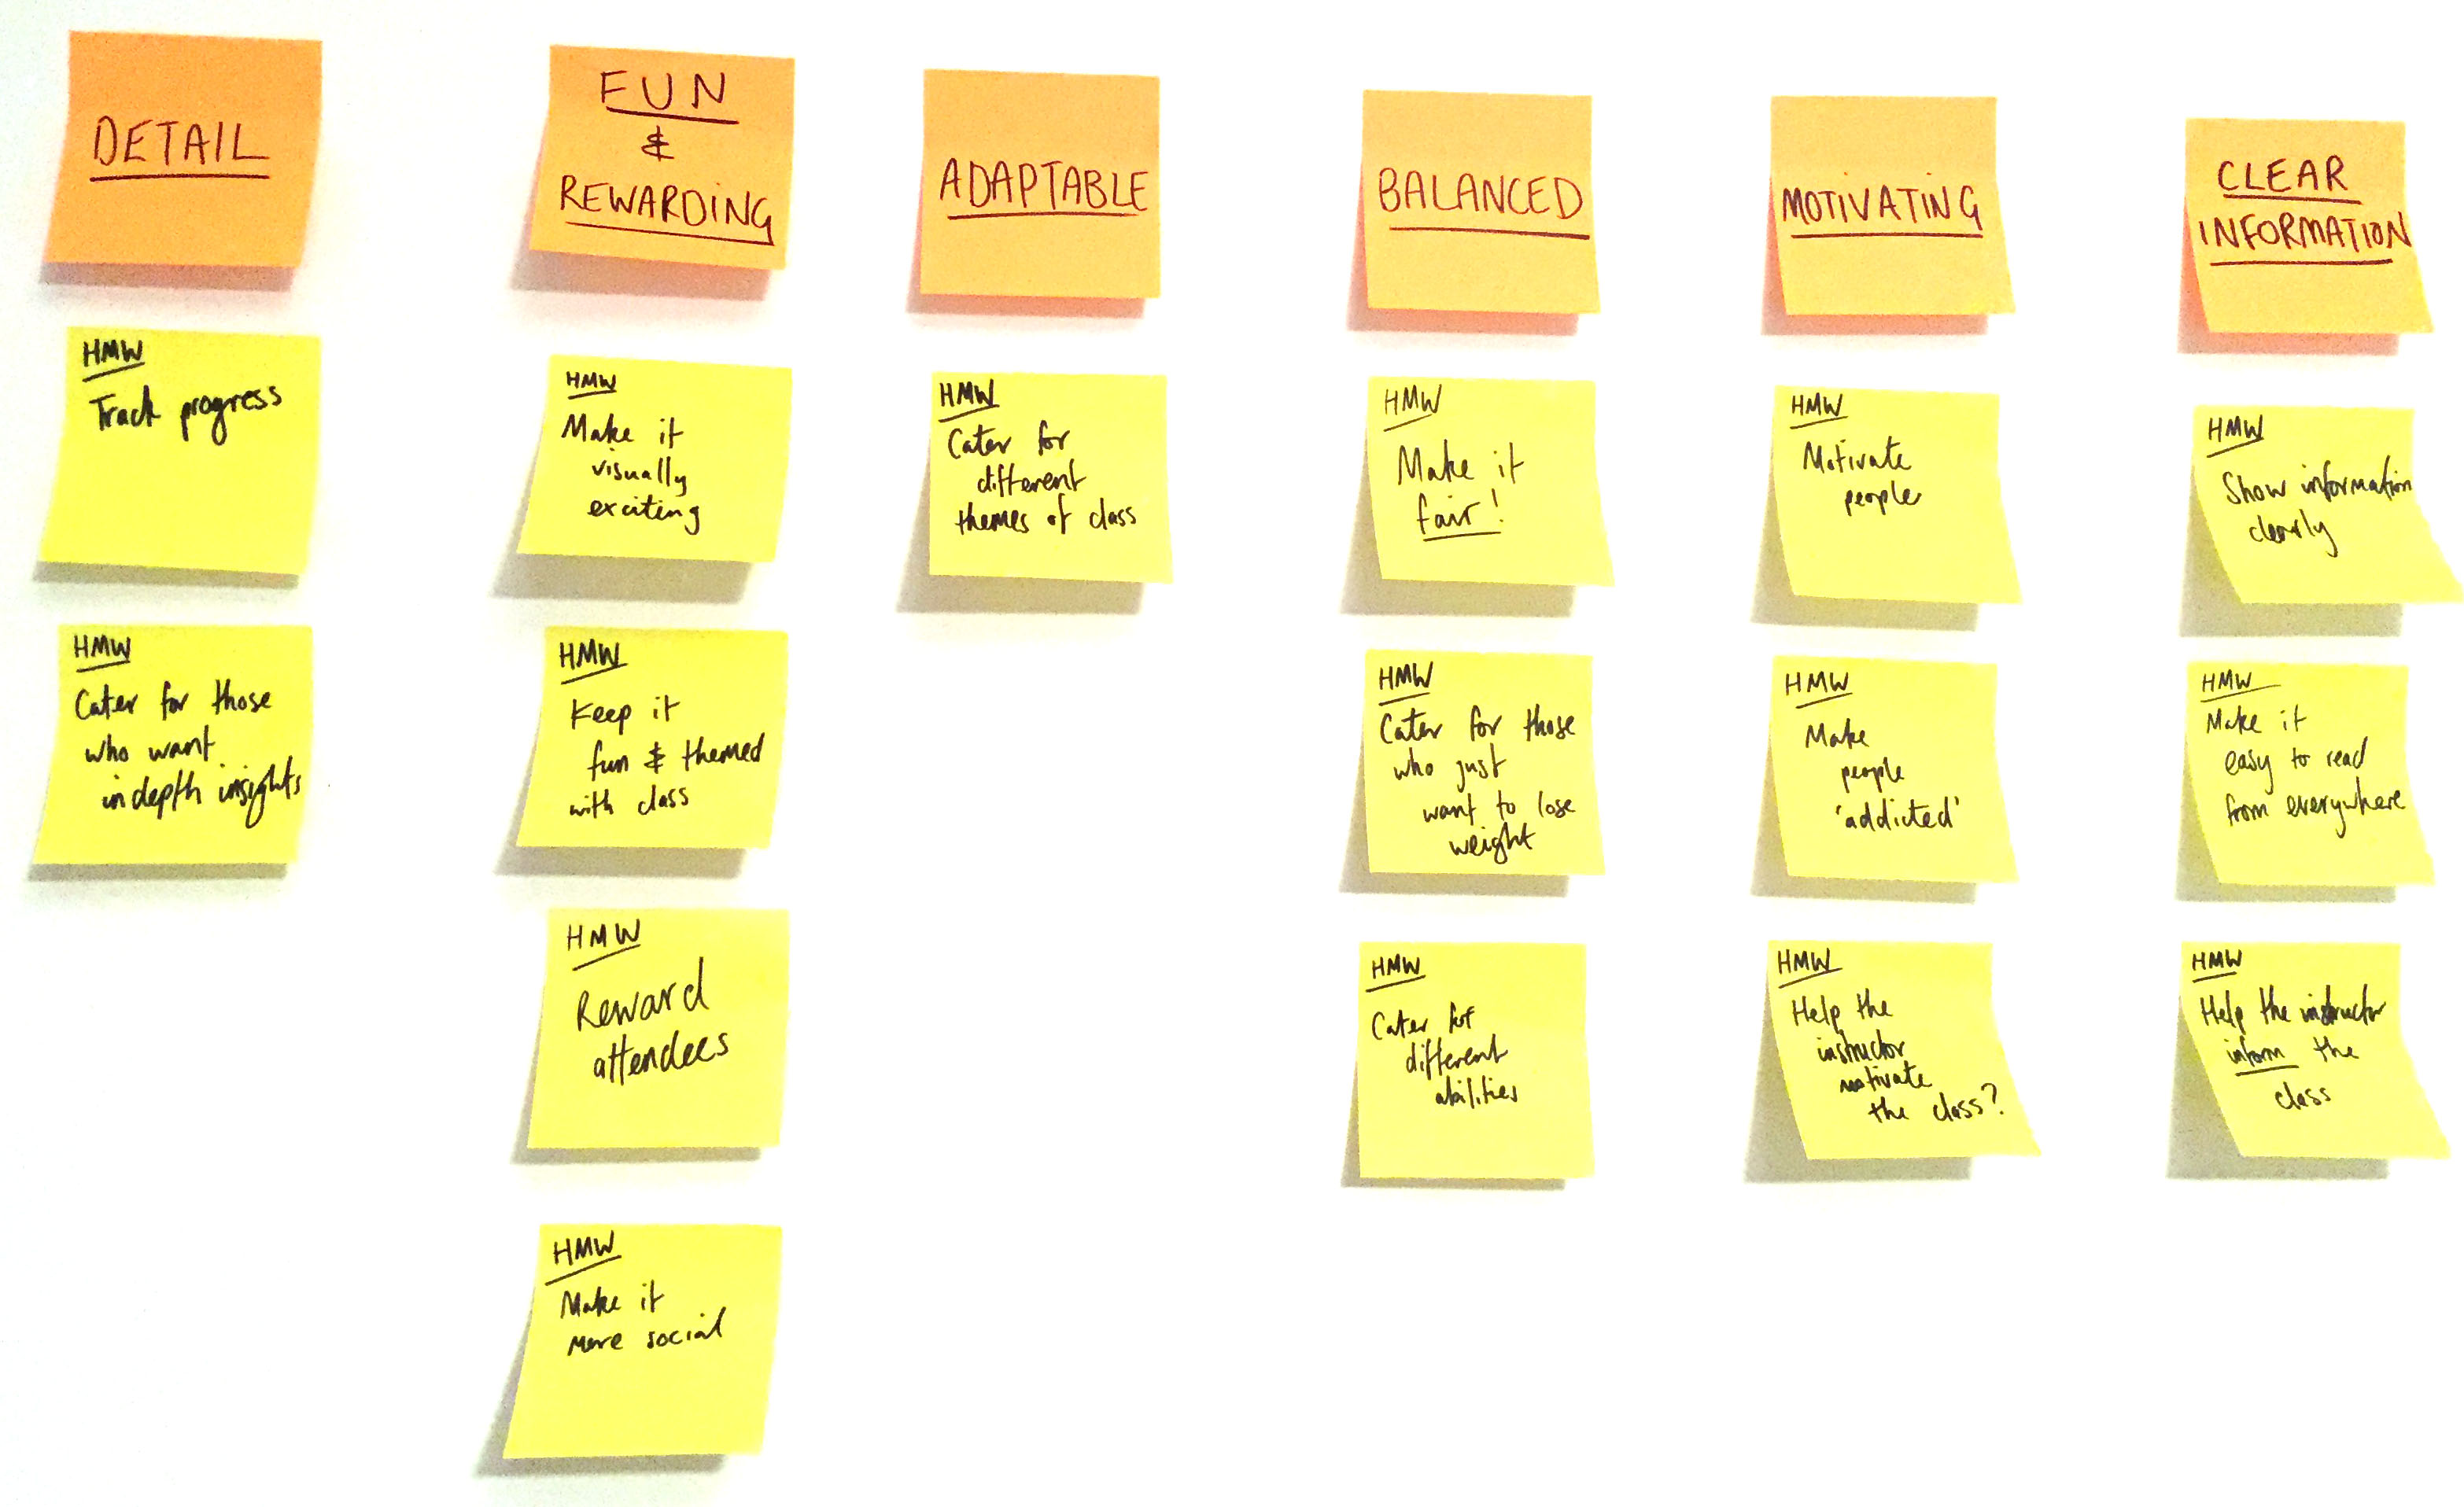 DETAIL
HMW
Track progress
HMW
Cater for those
who want
indepth insights
FUN
&
REWARDING
HMW
Make it
visually
exciting
HMW
Keep it
fun & themed
with class
HMW
Reward
attendees
HMW
Make it
more social
ADAPTABLE
HMW
Cater for
different
themes of class
BALANCED
HMW
Make it
fair!
HMW
Cater for those
who just
want to lose
weight
HMW
Cater for
different
abilities
MOTIVATING
HMW
Motivate
people
HMW
Make
people
'addicted'
HMW
Help the
instructor
motivate
the class?
CLEAR
INFORMATION
HMW
Show information
clearly
HMW
Make it
easy to read
from everywhere
HMW
Help the instructor
inform the
class